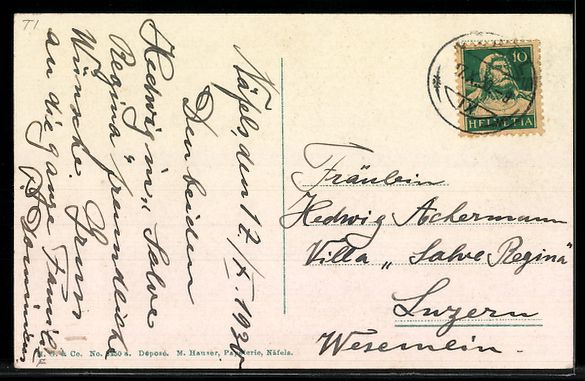 T1
Näfels, den 17./X. 1930
Den beiden
Hedwig in „Salve
Regina" freundliche
Wünsche. Gruss
an die ganze Familie
10
HELVETIA
Fräulein
Hedwig Ackermann
Villa „Salve Regina"
Luzern
Wesemlin.
& Co. No. a. Déposé. M. Hauser, Papeterie, Näfels.